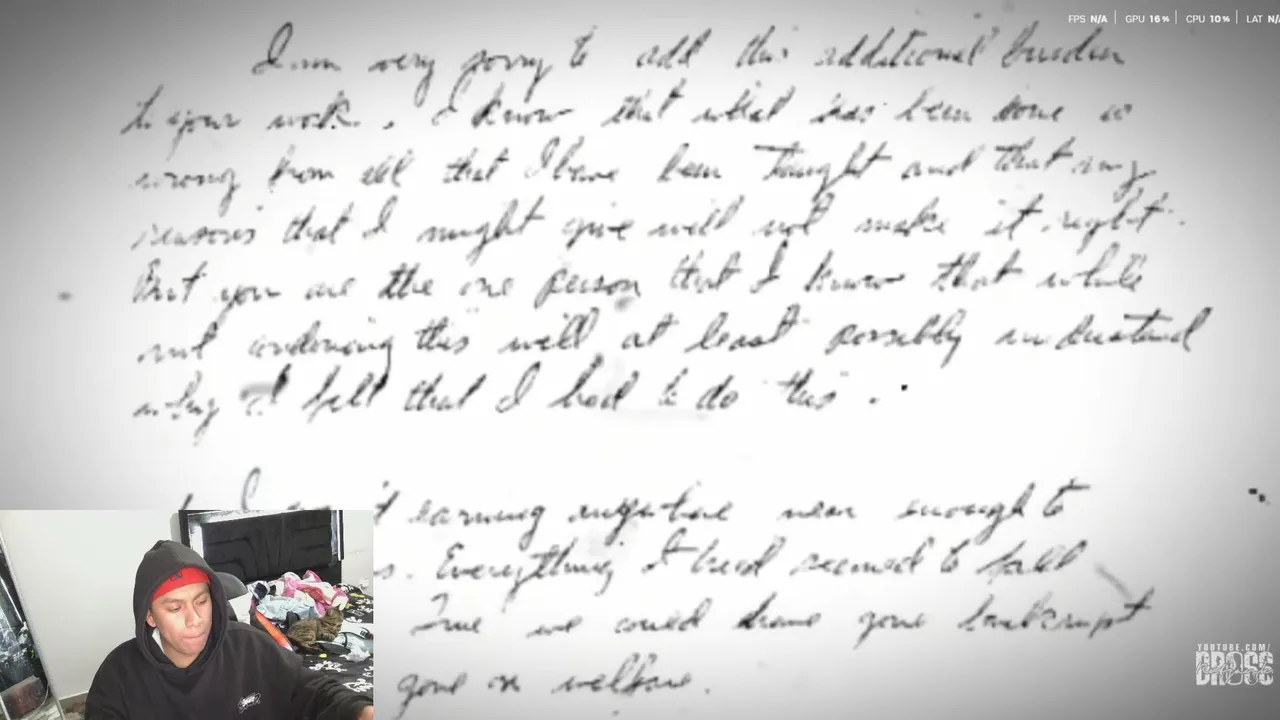 FPS N/A | GPU 16% | CPU 10% | LAT N/
I am very sorry to add this additional burden
to your work. I know that what has been done is
wrong from all that I have been taught and that any
reasons that I might give will not make it right.
But you are the one person that I know that while
not condoning this will at least possibly understand
why I felt that I had to do this.
earning anywhere near enough to
s. Everything I tried seemed to fall
True we could have gone bankrupt
gone on welfare.
YOUTUBE.COM/
DROSS